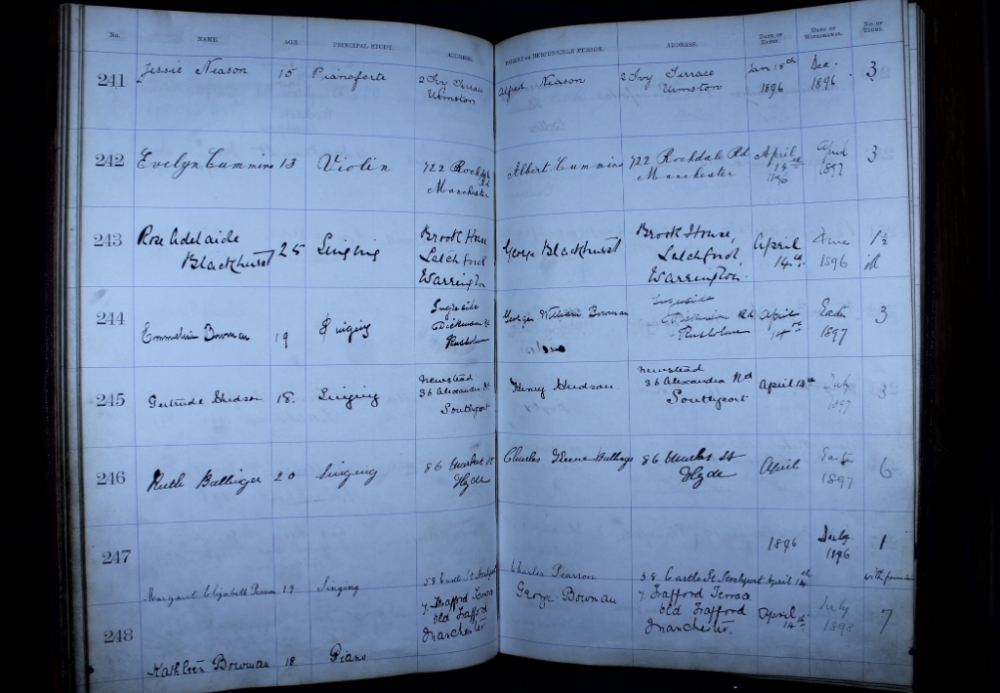 No. NAME. AGE. PRINCIPAL STUDY. ADDRESS. PARENT OR RESPONSIBLE PERSON. ADDRESS. DATE OF ENTRY. DATE OF WITHDRAWAL. NO. OF TERMS.
241 Jessie Neason 15 Pianoforte 2 Ivy Terrace Alfred Neason 2 Ivy Terrace Jan 15th Dec. 3
Urmston Urmston 1896 1896
242 Evelyn Cummins 13 Violin 722 Rochdale Rd Albert Cummins 722 Rochdale Rd April April 3
Manchester Manchester 1896 1897
243 Rose Adelaide 25 Singing Brook House, George Blackhurst Brook House, April 1½
Blackhurst Latchford Latchford, 14th 1896
Warrington Warrington.
244 Emmeline Bowman 19 Singing Ingleside George William Bowman Ingleside April 3
Dickenson Rd Dickenson Rd 14th 1897
Rusholme Rusholme
245 Gertrude Hudson 18. Singing Newstead Henry Hudson Newstead April 13th July 3
36 Alexandra Rd 36 Alexandra Rd 1897
Southport Southport
246 Ruth Ballinger 20 Singing 86 Market St Charles 86 Market St April 6
Hyde Hyde 1897
247 1896 July 1
1896
Margaret Elizabeth Pearson 19 Singing 58 Castle St Stockport Charles Pearson 58 Castle St Stockport April 14th
248 7 Trafford Terrace George Bowman 7 Trafford Terrace April July 7
Old Trafford Old Trafford 14th 1898
Manchester Manchester.
Kathleen Bowman 18 Piano